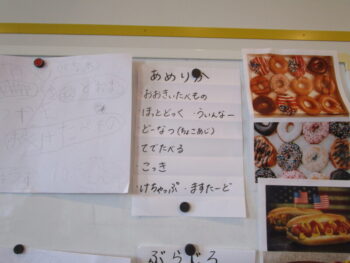 あめりか
おおきいたべもの
ほっとどっく・ういんなー
どーなつ(ちょこあじ)
てでたべる
こっき
けちゃっぷ・ますたーど
ぶらじる